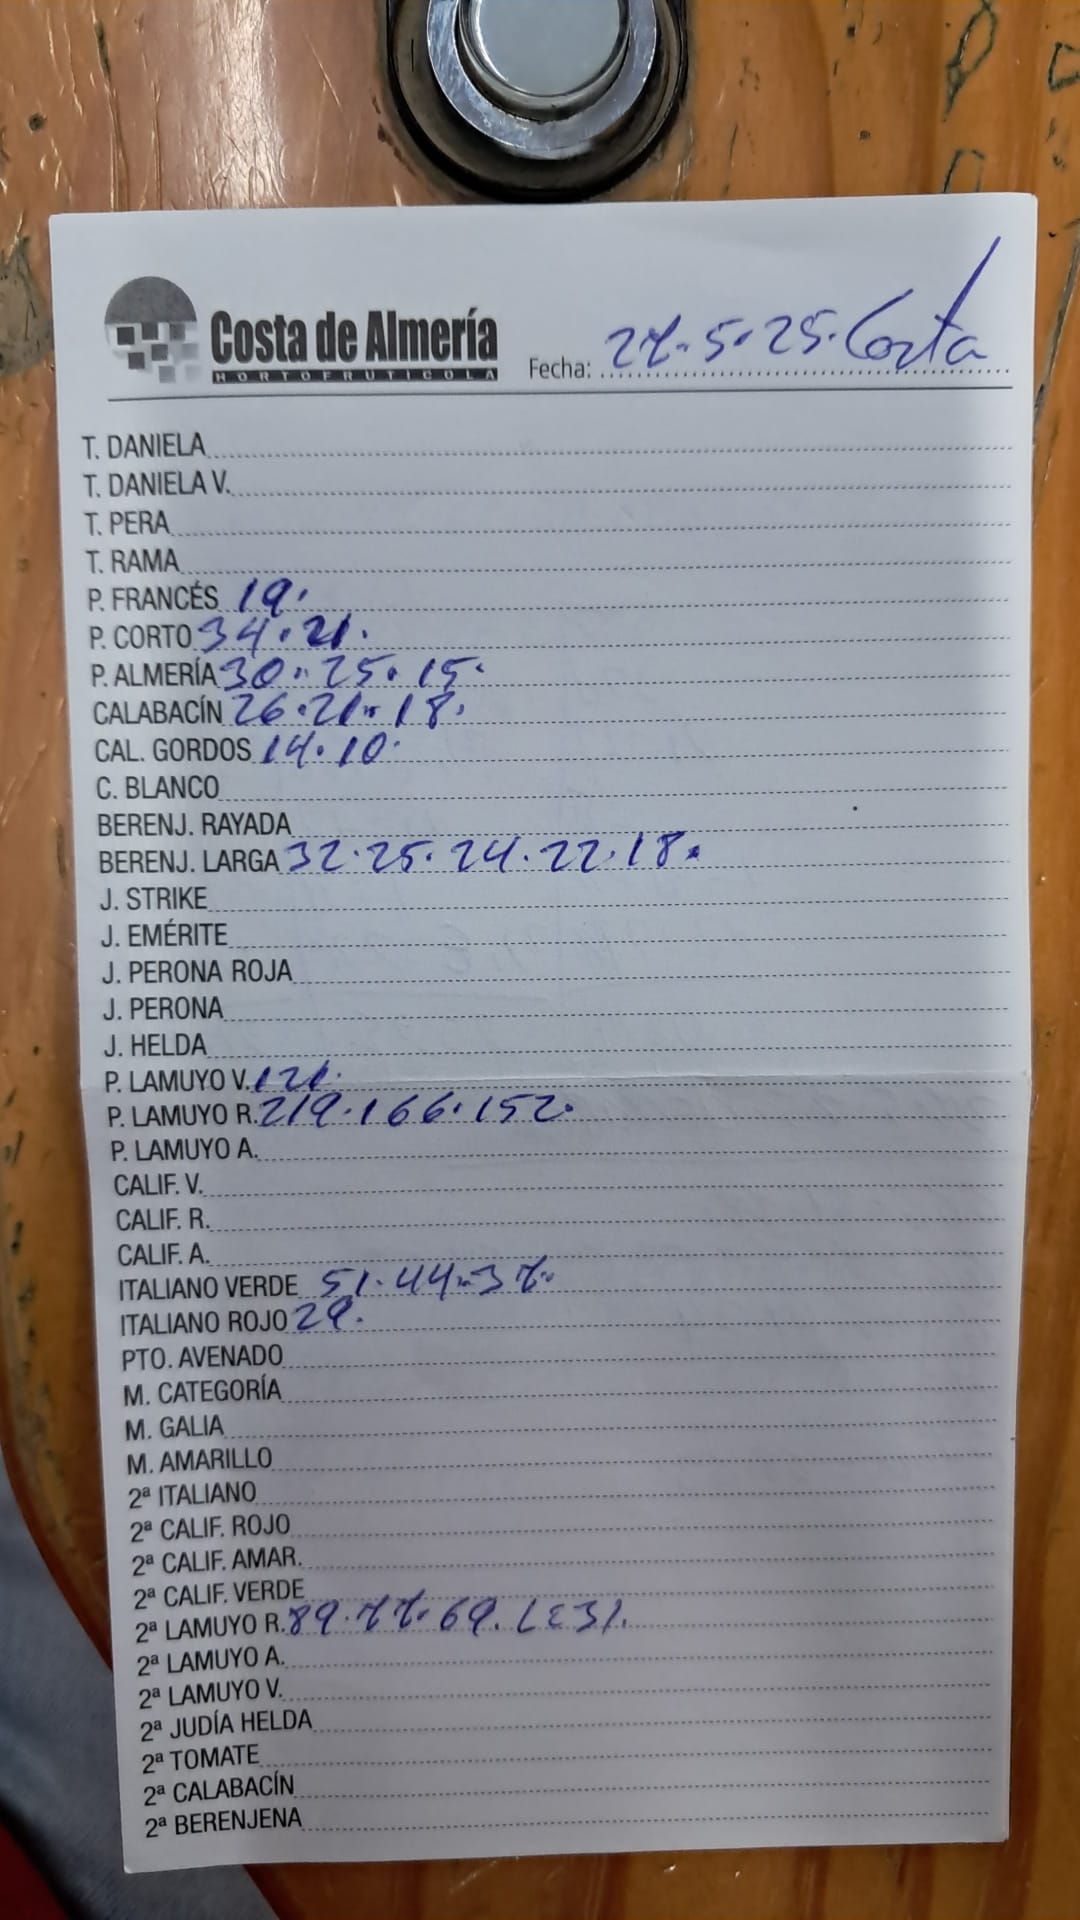 Costa de Almería
HORTOFRUTICOLA
Fecha: 27.5.25. Costa
T. DANIELA
T. DANIELA V.
T. PERA
T. RAMA
P. FRANCÉS 19.
P. CORTO 34.21.
P. ALMERÍA 30.25.15.
CALABACÍN 26.21.18.
CAL. GORDOS 14.10.
C. BLANCO
BERENJ. RAYADA
BERENJ. LARGA 32.25.24.22.18.
J. STRIKE
J. EMÉRITE
J. PERONA ROJA
J. PERONA
J. HELDA
P. LAMUYO V. 121.
P. LAMUYO R. 219.166.152.
P. LAMUYO A.
CALIF. V.
CALIF. R.
CALIF. A.
ITALIANO VERDE 51.44.37.
ITALIANO ROJO 29.
PTO. AVENADO
M. CATEGORÍA
M. GALIA
M. AMARILLO
2ª ITALIANO
2ª CALIF. ROJO
2ª CALIF. AMAR.
2ª CALIF. VERDE
2ª LAMUYO R. 89.77.69.
2ª LAMUYO A.
2ª LAMUYO V.
2ª JUDÍA HELDA
2ª TOMATE
2ª CALABACÍN
2ª BERENJENA